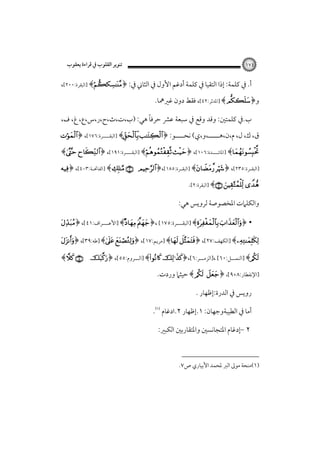 ١٧٤ تنوير القلوب في قراءة يعقوب
أ. في كلمة: إذا التقيا في كلمة أدغم الأول في الثاني في: ﴿مَّنَٰسِكَكُمۡ﴾ [البقرة:٢٠٠]،
و﴿سَلَكَكُمۡ﴾ [المدثر:٤٢]، فقط دون غيرهما.
ب. في كلمتين: وقد وقع في سبعة عشر حرفاً هي: (ب،ت،ث،ح،ر،س،ع،غ، ف،
ق، ك، ل، م،ن،هـ،و،ي) نحو: ﴿ٱلۡكِتَٰبَ بِٱلۡحَقِّ﴾ [البقرة:١٧٦]، ﴿ٱلۡمَوۡتِ
تَحۡبِسُونَهُمَا﴾ [المائدة:١٠٦]، ﴿حَيۡثُ ثَقِفۡتُمُوهُمۡ﴾ [البقرة:١٩١]، ﴿ٱلنِّكَاحِ حَتَّىٰ﴾
[البقرة:٢٣٥]، ﴿شَهۡرُ رَمَضَانَ﴾ [البقرة:١٨٥]، ﴿ٱلرَّحِيمِ مَٰلِكِ﴾ [الفاتحة:٣-٤]، ﴿فِيهِ
هُدٗى لِّلۡمُتَّقِينَ﴾ [البقرة:٢].
والكلمات المخصوصة لرويس هي:
• ﴿وَٱلۡعَذَابَ بِٱلۡمَغۡفِرَةِ﴾ [البقرة:١٧٥]، ﴿جَهَنَّمَ مِهَادٞ﴾ [الأعراف:٤١]، ﴿لَا مُبَدِّلَ
لِكَلِمَٰتِهِۦ﴾ [الكهف:٢٧]، ﴿فَتَمَثَّلَ لَهَا﴾ [مريم:١٧]، ﴿وَلِتُصۡنَعَ عَلَىٰ﴾ [طه:٣٩]، ﴿وَأَنزَلَ
لَكُم﴾ [النمل:٦٠]، [الزمر:٦]، ﴿كَذَٰلِكَ كَانُواْ﴾ [الروم:٥٥]، ﴿رَكَّبَكَ كَلَّا﴾
[الإنفطار:٨-٩]، ﴿جَعَلَ لَكُم﴾ حيثما وردت.
رويس في الدرة:إظهار .
أما في الطيبةوجهان: ١.إظهار ٢.ادغام (١).
٢ –إدغام المتجانسين والمتقاربين الكبير:
(١)منحة مولى البر لمحمد الأبياري ص٧.